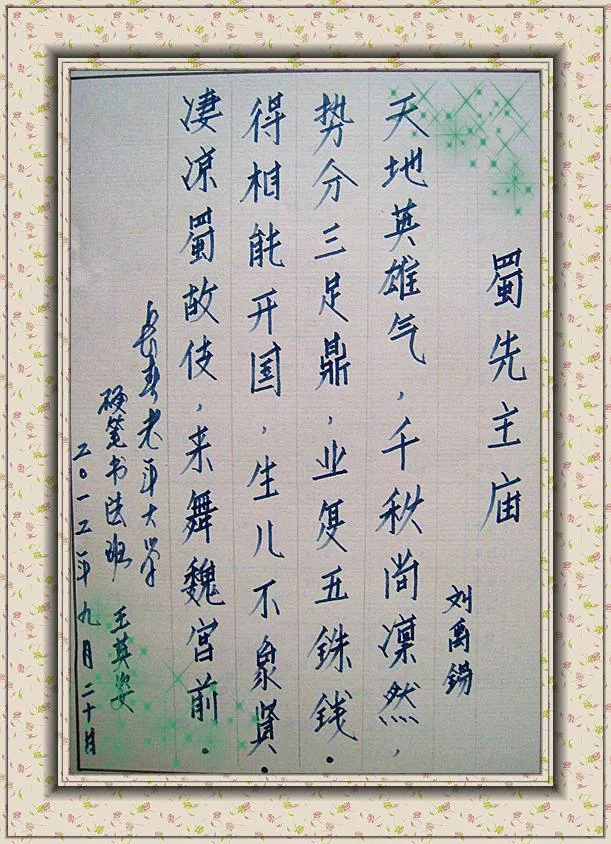 蜀先主庙
刘禹锡
天地英雄气,千秋尚凛然,
势分三足鼎,业复五铢钱.
得相能开国,生儿不象贤.
凄凉蜀故伎,来舞魏宫前.
长春老年大学
硬笔书法班 王英姿
二〇一二年九月二十月